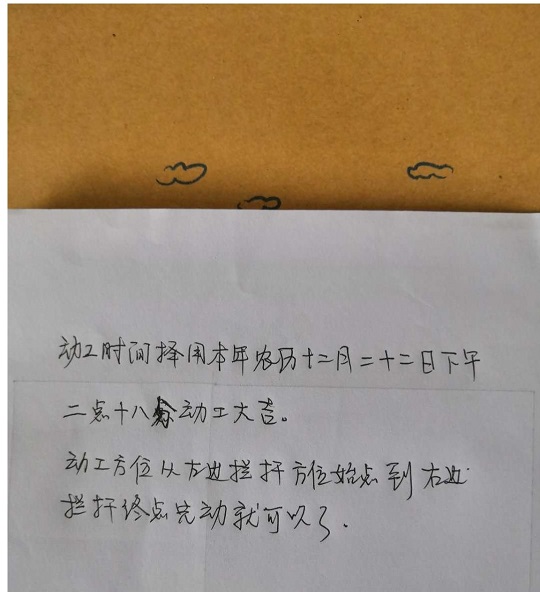 动工时间择用本年农历十二月二十二日下午
二点十八分动工大吉。
动工方位从左边拦扞方位始点到右边
拦扞终点完动就可以了.